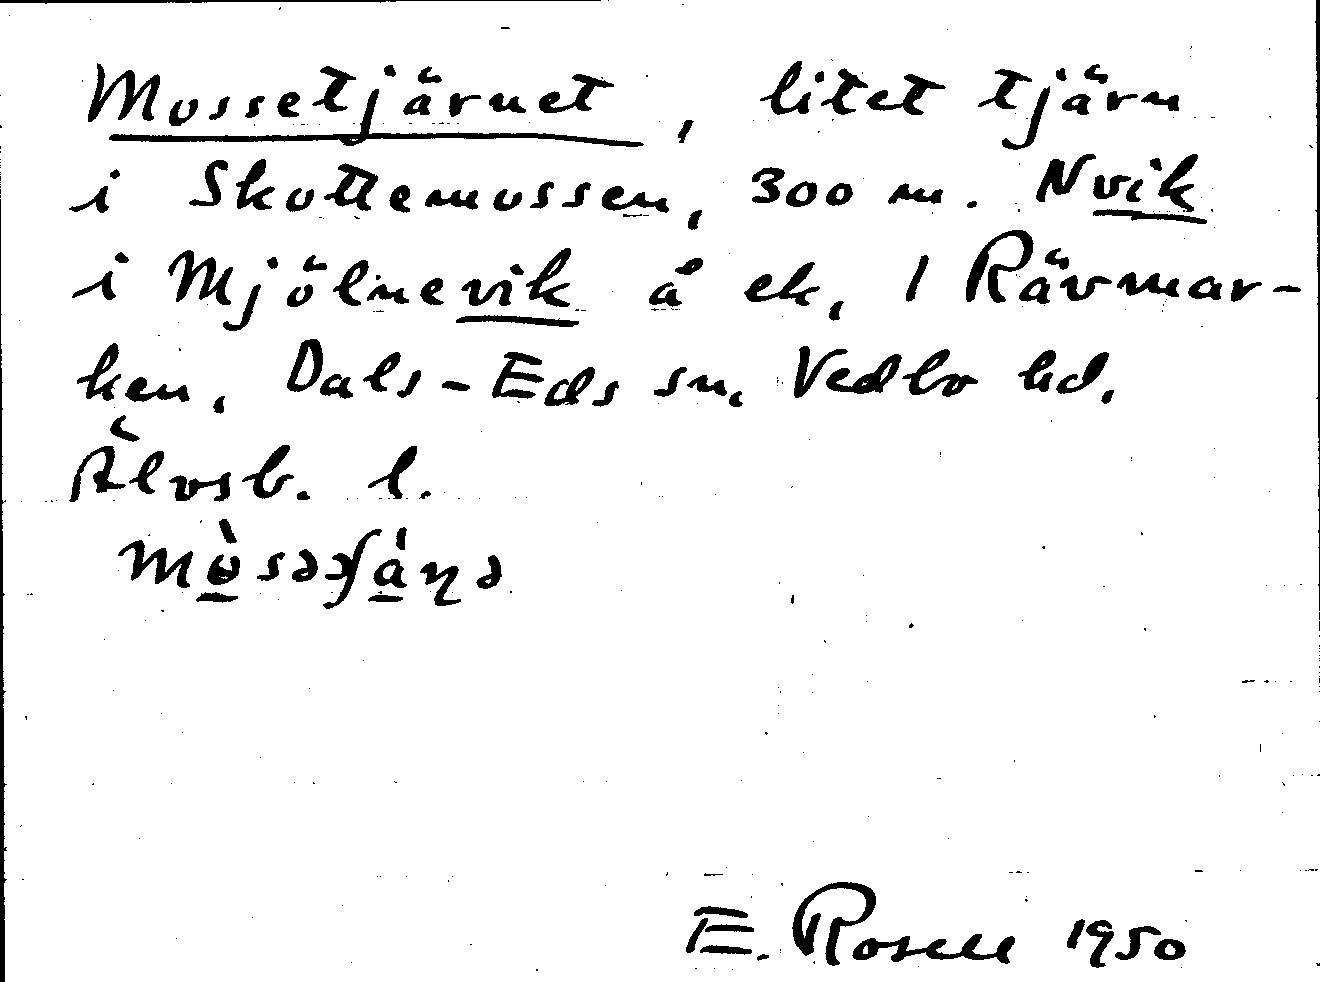 Mossetjärnet, litet tjärn
i Skottemossen, 300 m. Nvik
i Mjölnevik å ek. 1 Rävmar-
ken, Dals-Eds sn, Vedbo hd.
Älvsb. l.
E. Rosell 1950